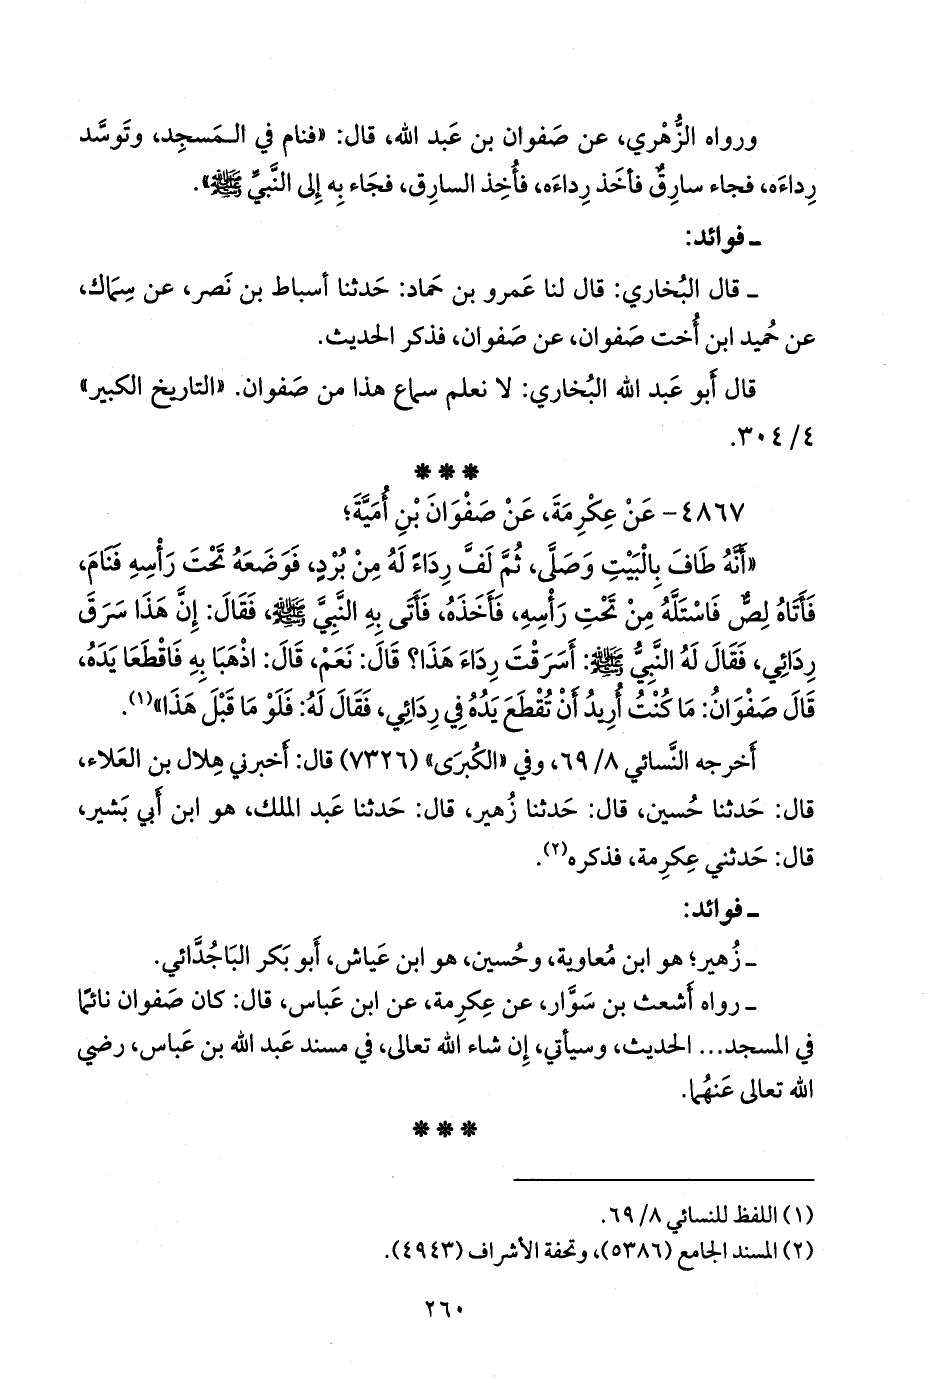 ورواه الزُّهْري، عن صَفوان بن عَبد الله، قال: «فنام في الـمَسجِد، وتَوسَّد
رِداءَه، فجاء سارِقٌ فأخَذ رِداءَه، فأُخِذ السارِق، فجَاء بِه إِلى النَّبيِّ ﷺ».
ـ فوائد:
ـ قال البُخاري: قال لنا عَمرو بن حَماد: حَدثنا أسباط بن نَصر، عن سِمَاك،
عن حُميد ابن أُخت صَفوان، عن صَفوان، فذكر الحديث.
قال أَبو عَبد الله البُخاري: لا نعلم سماع هذا من صَفوان. «التاريخ الكبير»
٤/ ٣٠٤.
* * *
٤٨٦٧- عَنْ عِكْرِمَةَ، عَنْ صَفْوَانَ بْنِ أُمَيَّةَ؛
«أَنَّهُ طَافَ بِالْبَيْتِ وَصَلَّى، ثُمَّ لَفَّ رِدَاءً لَهُ مِنْ بُرْدٍ، فَوَضَعَهُ تَحْتَ رَأْسِهِ فَنَامَ،
فَأَتَاهُ لِصٌّ فَاسْتَلَّهُ مِنْ تَحْتِ رَأْسِهِ، فَأَخَذَهُ، فَأَتَى بِهِ النَّبِيَّ ﷺ، فَقَالَ: إِنَّ هَذَا سَرَقَ
رِدَائِي، فَقَالَ لَهُ النَّبِيُّ ﷺ: أَسَرَقْتَ رِدَاءَ هَذَا؟ قَالَ: نَعَمْ، قَالَ: اذْهَبَا بِهِ فَاقْطَعَا يَدَهُ،
قَالَ صَفْوَانُ: مَا كُنْتُ أُرِيدُ أَنْ تُقْطَعَ يَدُهُ فِي رِدَائِي، فَقَالَ لَهُ: فَلَوْ مَا قَبْلَ هَذَا»(١).
أَخرجه النَّسائي ٨/ ٦٩، وفي «الكُبرَى» (٧٣٢٦) قال: أَخبرني هِلال بن العَلاء،
قال: حَدثنا حُسين، قال: حَدثنا زُهير، قال: حَدثنا عَبد الملك، هو ابن أَبي بَشير،
قال: حَدثني عِكرِمة، فذكره(٢).
ـ فوائد:
ـ زُهير؛ هو ابن مُعاوية، وحُسين، هو ابن عَياش، أَبو بَكر البَاجُدَّائي.
ـ رواه أَشعث بن سَوَّار، عن عِكرِمة، عن ابن عَباس، قال: كان صَفوان نائمًا
في المسجد... الحديث، وسيأتي، إِن شاء الله تعالى، في مسند عَبد الله بن عَباس، رضي
الله تعالى عَنهُما.
* * *
(١) اللفظ للنسائي ٨/ ٦٩.
(٢) المسند الجامع (٥٣٨٦)، وتحفة الأشراف (٤٩٤٣).
٢٦٠